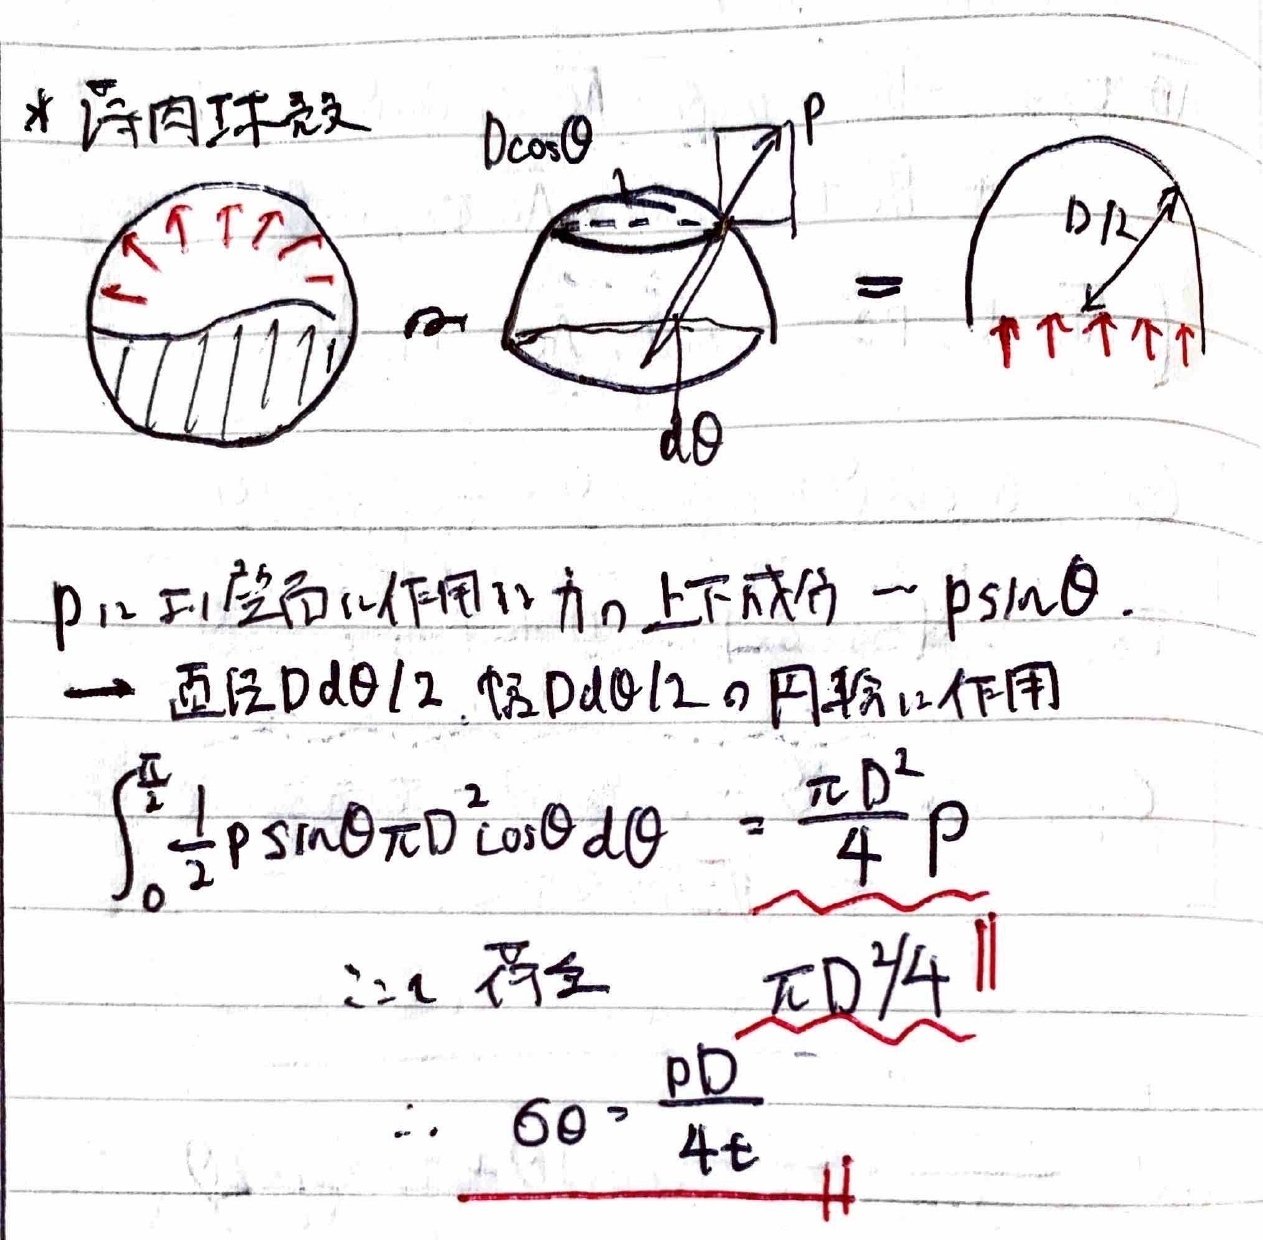 * 薄肉球殻
Dcosθ
P
D/2
=
dθ
Pにより壁面に作用する力の上下成分 ~ psinθ.
→ 直径Ddθ/2, 幅Ddθ/2の円輪に作用
∫₀^(π/2) 1/2 p sinθπD²cosθdθ = πD²/4 P
πD²/4
∴ σθ = pD/4t